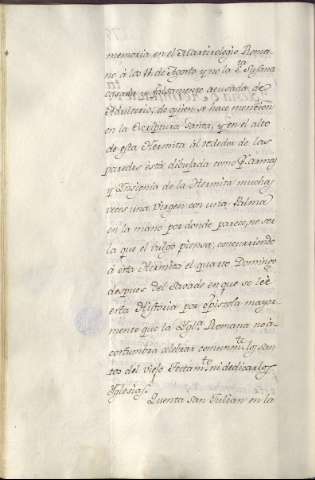 memoria en el Martirologio Roma-
no á los 11 de Agosto y no la S.ta Susana
casada y falsamente acusada de
Adulterio, de quien se hace mención
en la Escriptura Santa, y en el alto
de esta Hermita al rededor de las
paredes está dibujada como Q. armas
y Insignia de la Hermita muchas
veces una Virgen con una Palma
en la mano por donde parece no ser
la que el vulgo piensa, concurriendo
á esta Hermita el quarto Domingo
despues del Savado en que se lee
esta Historia por epistola mayor-
mente que la Ygl.ª Romana no a-
costumbra celebrar comunm.te los san-
tos del viejo Testam.to ni dedicarlos
Yglesias.
Quenta San Julian en la